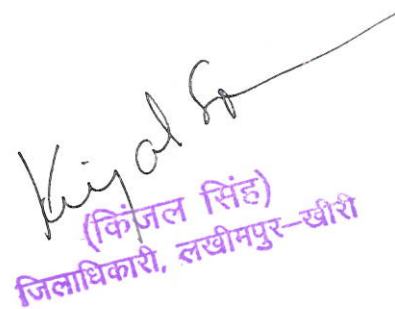 Kinjal S
(किंजल सिंह)
जिलाधिकारी, लखीमपुर–खीरी